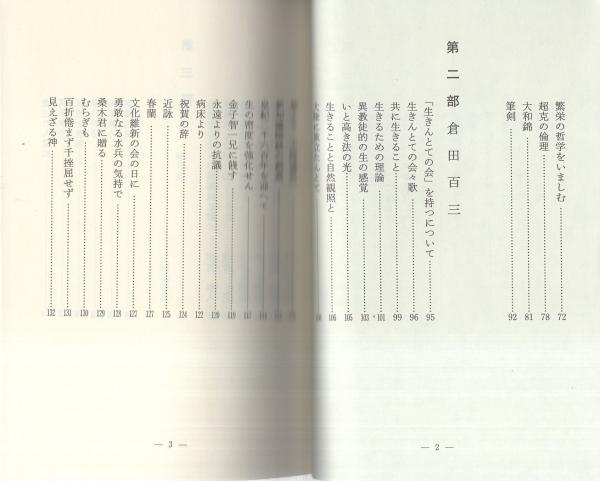 繁栄の哲学をいましむ……72
超克の倫理……78
大和錦……81
筆剣……92
第二部 倉田百三
「生きんとての会」を持つについて……95
生きんとての会々歌……96
共に生きること……99
生きるための理論……101
異教徒的の生の感覚……103
いと高き法の光……105
生きることと自然観照と……106
― 2 ―
生の密度を強化せん
金子智一兄に餞す……119
永遠よりの抗議……120
病床より……122
祝賀の辞……124
近詠……125
春蘭……127
文化維新の会の日に……127
勇敢なる水兵の気持で……128
桑木君に贈る……129
むらぎも……130
百折倦まず千挫屈せず……131
見えざる神……132
― 3 ―